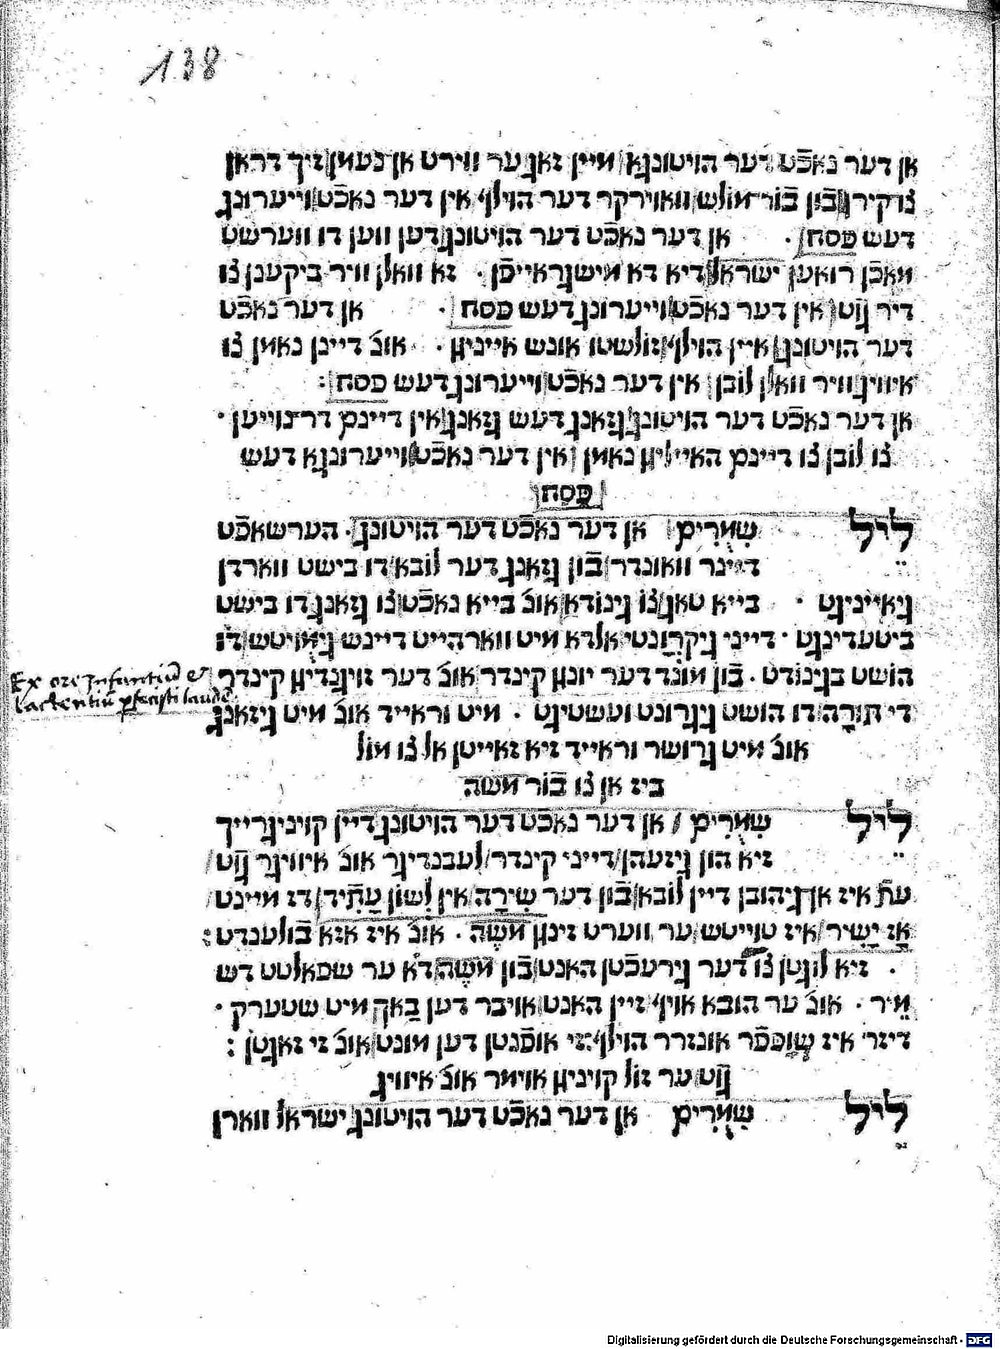 138
אן דער נאכֿט דער הויטונגא מיין זאג ער ווירט אן נעמן זיך דראן
צו קירן בֿון בֿור מולש וואוירקר דער הוילף אין דער נאכֿט ווייערונג
דעש פסח · אן דער נאכֿט דער הויטונג דען ווען דו ווערשט
מאכֿן רואען ישראל דיא דא מישגראייכֿן · זא וואלן וויר ביקענן צו
דיר גוט אין דער נאכֿט ווייערונג דעש פסח · אן דער נאכֿט
דער הויטונג איין הוילף זולשטו אונש אייניגן · אונ' דיינן נאמן צו
איוויג וויר וואלן לובן אין דער נאכֿט ווייערונג דעש פסח :
אן דער נאכֿט דער הויטונג גזאנג דעש גזאנג אין דיינם דרצווייען ·
צו לובן צו דיינם הייליגן נאמן אין דער נאכֿט ווייערונגא דעש
פסח
ליל שמרים אן דער נאכֿט דער הויטונג · הערשאפֿט
דיינר וואונדר בֿון גזאנג דער לובא דו בישט ווארדן
גיאייניגט · בייא טאג צו גינודא אונ' בייא נאכֿט צו גזאנג דו בישט
ביטעדינגט · דייני גיקרונטי אלדא מיט ווארהייט דיינש גימויטש דו
הושט בגינודט · בֿון מונד דער יונגן קינדר אונ' דער זויגנדיגן קינדר
די תורה דו הושט גיגרונט וועשטינט · מיט וראייד אונ' מיט גיזאנג
אונ' מיט גרושר וראייד זיא זאייטן אל צו מול
ביז אן צו בֿור משה
Ex ore Infantiū et
lactentiū pfecisti laudē
ליל שמרים / אן דער נאכֿט דער הויטונג דיין קויניגרייך
זיא הון גיזעהן דייני קינדר לעבנדיגר אונ' איוויגר גוט
עת איז אן גיהובן דיין לובא בֿון דער שירה אין לשון עתיד דז מיינט
אז ישיר איז טוייטש ער ווערט זינגן משה · אונ' איז אזא בֿולענדט :
זיא לוגטן צו דער גירעכֿטן האנט בֿון משה דא ער שפאלטט דש
מיר · אונ' ער הובא אויף זיין האנט אויבר דען באך מיט שטערק ·
דיזר איז שופֿפר אונזרר הוילף זי אופֿנטן דען מונט אונ' זי זאגטן :
גוט ער זול קויניגן אוימר אונ' איוויג
ליל שמרים אן דער נאכֿט דער הויטונג ישראל ווארן
Digitalisierung gefördert durch die Deutsche Forschungsgemeinschaft - DFG